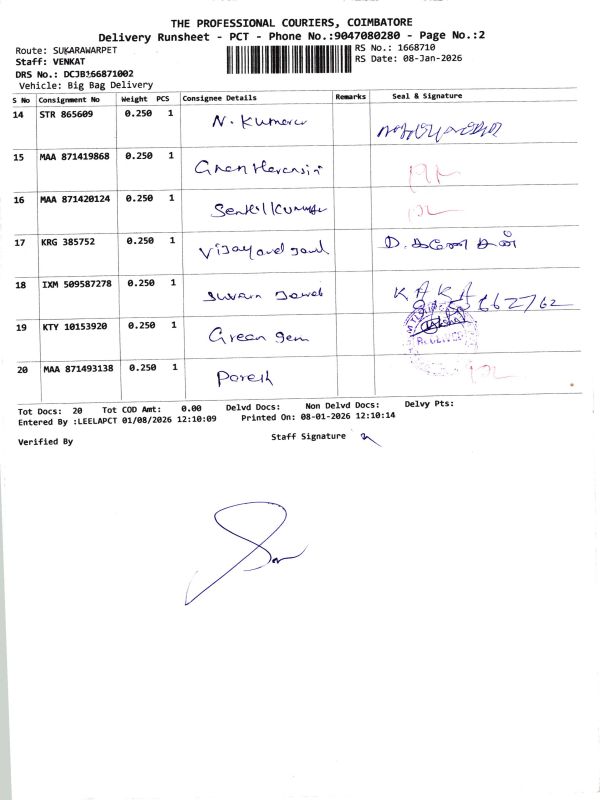 THE PROFESSIONAL COURIERS, COIMBATORE
Delivery Runsheet - PCT - Phone No.:9047080280 - Page No.:2
Route: SUKARAWARPET
RS No.: 1668710
Staff: VENKAT
RS Date: 08-Jan-2026
DRS No.: DCJB166871002
Vehicle: Big Bag Delivery
S No Consignment No Weight PCS Consignee Details Remarks Seal & Signature
14 STR 865609 0.250 1 N. Kumaran
15 MAA 871419868 0.250 1
16 MAA 871420124 0.250 1 Senthil Kumar
17 KRG 385752 0.250 1 D. கணேசன்
18 IXM 509587278 0.250 1 K A K A
19 KTY 10153920 0.250 1 Green gem
20 MAA 871493138 0.250 1 Poresh
Tot Docs: 20 Tot COD Amt: 0.00 Delvd Docs: Non Delvd Docs: Delvy Pts:
Entered By :LEELAPCT 01/08/2026 12:10:09 Printed On: 08-01-2026 12:10:14
Verified By Staff Signature